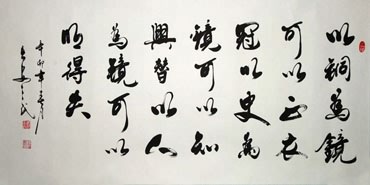 以铜為鏡
可以正衣
冠以史為
鏡可以知
興替以人
為鏡可以
明得失
辛卯年